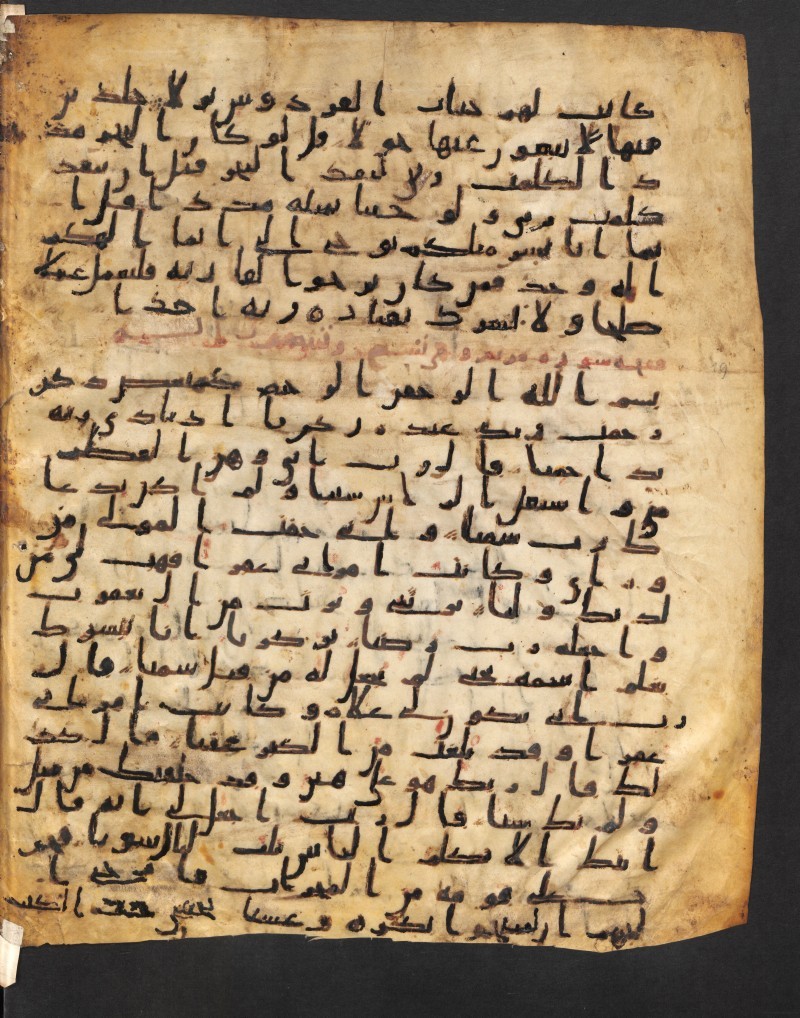 كانت لهم جنت الفردوس نزلا خلدين
فيها لا يبغون عنها حولا قل لو كان البحر مد
دا لكلمت ربي لنفد البحر قبل ان تنفد
كلمت ربي ولو جينا بمثله مددا قل ا
نما انا بشر مثلكم يوحى الي انما الهكم
اله وحد فمن كان يرجوا لقا ربه فليعمل عملا
صلحا ولا يشرك بعباده ربه احدا
سورة مريم
بسم الله الرحمن الرحيم كهيعص ذكر
رحمت ربك عبده زكريا اذ نادى ربه
ندا خفيا قال رب اني وهن العظم
مني واشتعل الراس شيبا ولم اكن بدعا
ك رب شقيا واني خفت المولي من
وراي وكانت امراتي عقرا فهب لي من
لدنك وليا يرثني ويرث من ال يعقوب
واجعله رب رضيا يزكريا انا نبشرك
بغلم اسمه يحيى لم نجعل له من قبل سميا قال
رب انى يكون لي غلام وكانت امراتي
عقرا وقد بلغت من الكبر عتيا قال كذ
لك قال ربك هو علي هين وقد خلقتك من قبل
ولم تك شيا قال رب اجعل لي اية قال
ايتك الا تكلم الناس ثلث ليال سويا فخر
ج على قومه من المحراب فاوحى ا
ليهم ان سبحوا بكرة وعشيا ييحيى خذ الكتب